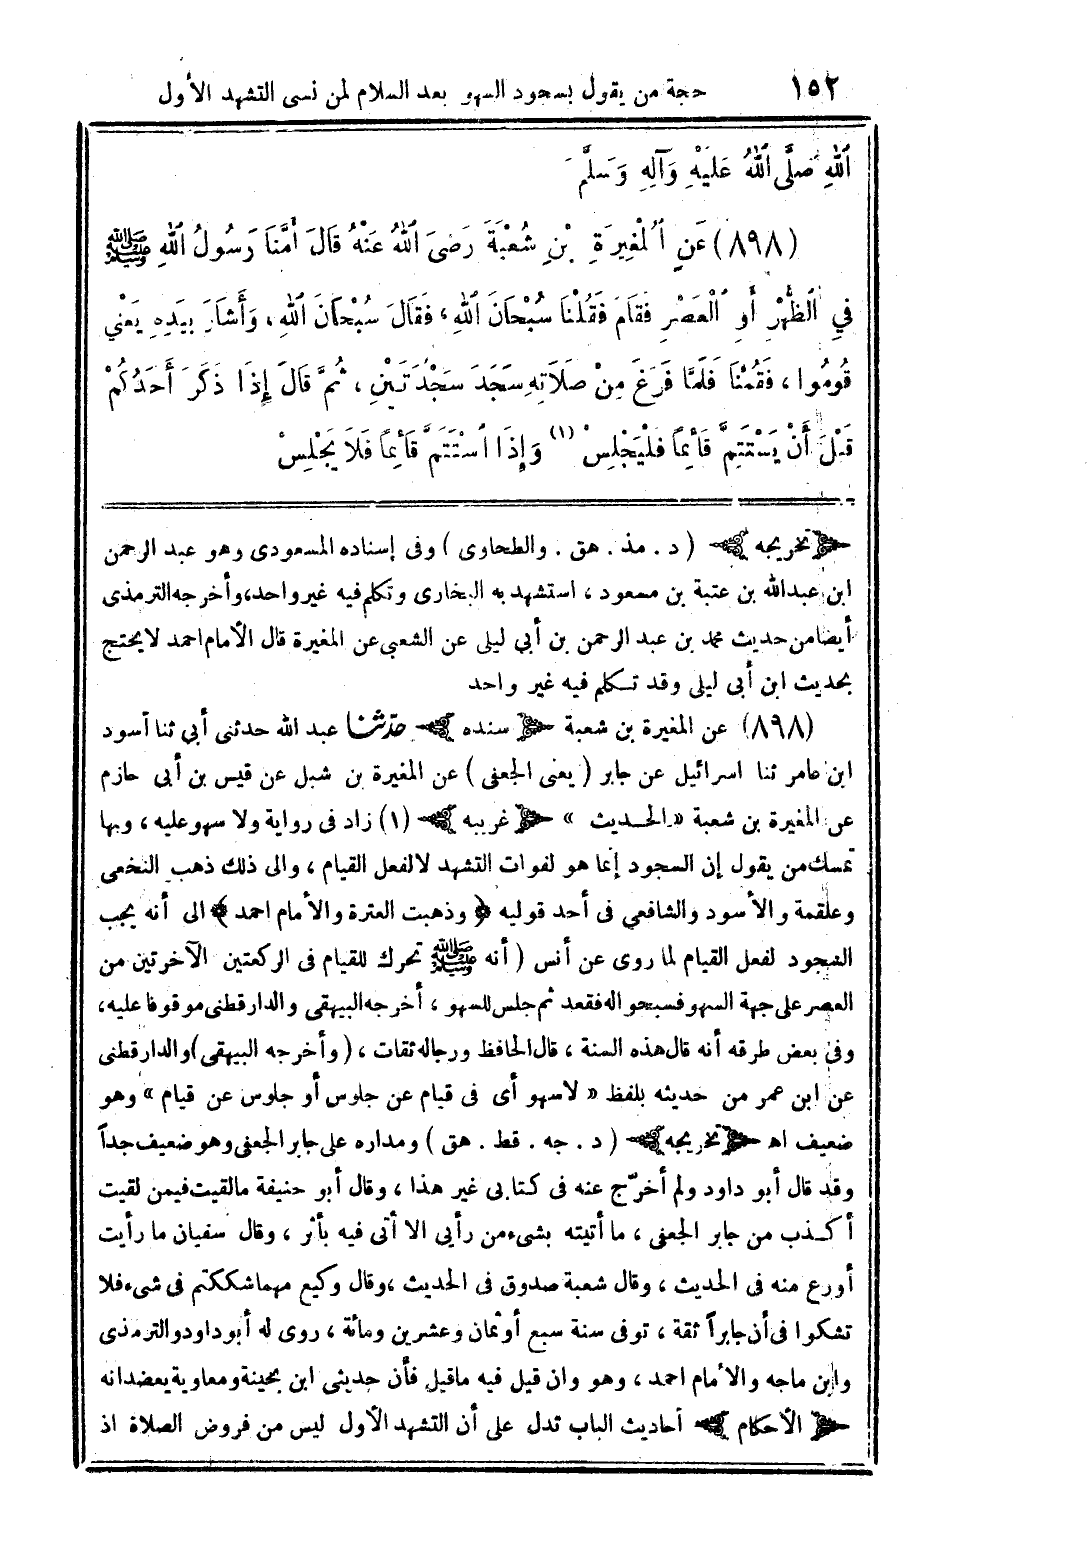 ١٥٢ حجة من يقول بسجود السهو بعد السلام لمن نسى التشهد الأول
ٱللهِ صَلَّى ٱللهُ عَلَيْهِ وَآلِهِ وَسَلَّمَ
(٨٩٨) عَنِ ٱلْمُغِيرَةِ بْنِ شُعْبَةَ رَضِىَ ٱللهُ عَنْهُ قَالَ أَمَّنَا رَسُولُ ٱللهِ ﷺ
فِي ٱلظُّهْرِ أَوِ ٱلْعَصْرِ فَقَامَ فَقُلْنَا سُبْحَانَ ٱللهِ ، فَقَالَ سُبْحَانَ ٱللهِ ، وَأَشَارَ بِيَدِهِ يَعْنِي
قُومُوا ، فَقُمْنَا فَلَمَّا فَرَغَ مِنْ صَلَاتِهِ سَجَدَ سَجْدَتَيْنِ ، ثُمَّ قَالَ إِذَا ذَكَرَ أَحَدُكُمْ
قَبْلَ أَنْ يَسْتَتِمَّ قَائِمًا فَلْيَجْلِسْ (١) وَإِذَا ٱسْتَتَمَّ قَائِمًا فَلَا يَجْلِسْ
﴿ تخريجه ﴾ ( د . مذ . هق . والطحاوى ) وفى إسناده المسعودى وهو عبد الرحمن
ابن عبدالله بن عتبة بن مسعود ، استشهد به البخارى وتكلم فيه غير واحد، وأخرجه الترمذى
أيضا من حديث محمد بن عبد الرحمن بن أبي ليلى عن الشعبى عن المغيرة قال الأمام احمد لا يحتج
بحديث ابن أبى ليلى وقد تكلم فيه غير واحد
(٨٩٨) عن المغيرة بن شعبة ﴿ سنده ﴾ حدّثنا عبد الله حدثنى أبي ثنا أسود
ابن عامر ثنا اسرائيل عن جابر ( يعنى الجعفى ) عن المغيرة بن شبل عن قيس بن أبى حازم
عن المغيرة بن شعبة « الحديث » ﴿ غريبه ﴾ (١) زاد فى رواية ولا سهو عليه ، وبها
تمسك من يقول إن السجود إنما هو لفوات التشهد لا لفعل القيام ، والى ذلك ذهب النخعى
وعلقمة والأسود والشافعي فى أحد قوليه ﴿ وذهبت العترة والأمام احمد ﴾ الى أنه يجب
السجود لفعل القيام لما روى عن أنس ( أنه ﷺ تحرك للقيام فى الركعتين الآخرتين من
العصر على جهة السهو فسبحوا له فقعد ثم جلس للسهو ، أخرجه البيهقى والدار قطنى موقوفا عليه،
وفى بعض طرقه أنه قال هذه السنة ، قال الحافظ ورجاله ثقات ، ( وأخرجه البيهقى ) والدارقطنى
عن ابن عمر من حديثه بلفظ « لا سهو أى فى قيام عن جلوس أو جلوس عن قيام » وهو
ضعيف اه ﴿ تخريجه ﴾ ( د . جه . قط . هق ) ومداره على جابر الجعفى وهو ضعيف جداً
وقد قال أبو داود ولم أخرّج عنه فى كتابى غير هذا ، وقال أبو حنيفة مالقيت فيمن لقيت
أكذب من جابر الجعفى ، ما أتيته بشىء من رأيى الا أتى فيه بأثر ، وقال سفيان ما رأيت
أورع منه فى الحديث ، وقال شعبة صدوق فى الحديث ،وقال وكيع مهما شككتم فى شىء فلا
تشكوا فى أن جابراً ثقة ، توفى سنة سبع أو ثمان وعشرين ومائة ، روى له أبو داود والترمذى
وابن ماجه والأمام احمد ، وهو وان قيل فيه ماقيل فأن حديثى ابن بحينة ومعاوية يعضدانه
﴿ الأحكام ﴾ أحاديث الباب تدل على أن التشهد الأول ليس من فروض الصلاة اذ